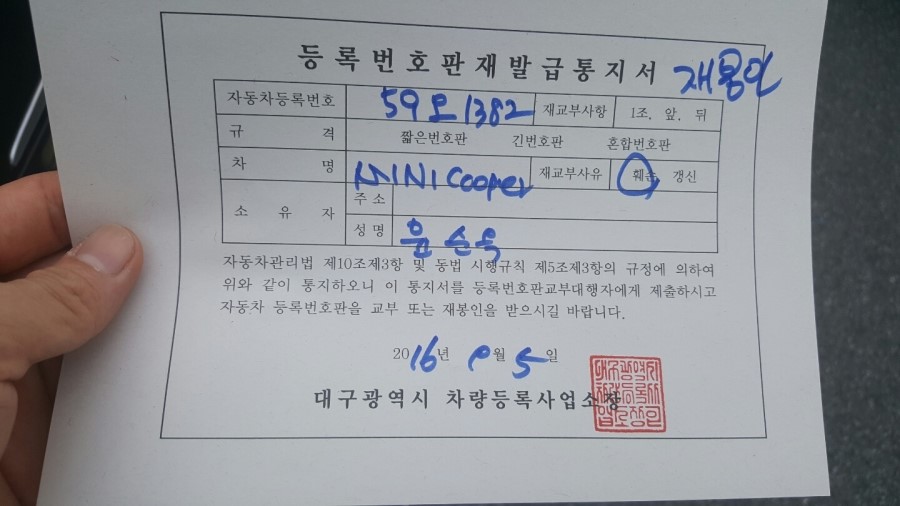 등록번호판재발급통지서 재봉인
자동차등록번호 59오1382 재교부사항 1조, 앞, 뒤
규 격 짧은번호판 긴번호판 혼합번호판
차 명 MINI Cooper 재교부사유 훼손 갱신
소 유 자 주 소
성 명 윤순옥
자동차관리법 제10조제3항 및 동법 시행규칙 제5조제3항의 규정에 의하여
위와 같이 통지하오니 이 통지서를 등록번호판교부대행자에게 제출하시고
자동차 등록번호판을 교부 또는 재봉인을 받으시길 바랍니다.
2016년 월 5일
대구광역시 차량등록사업소장